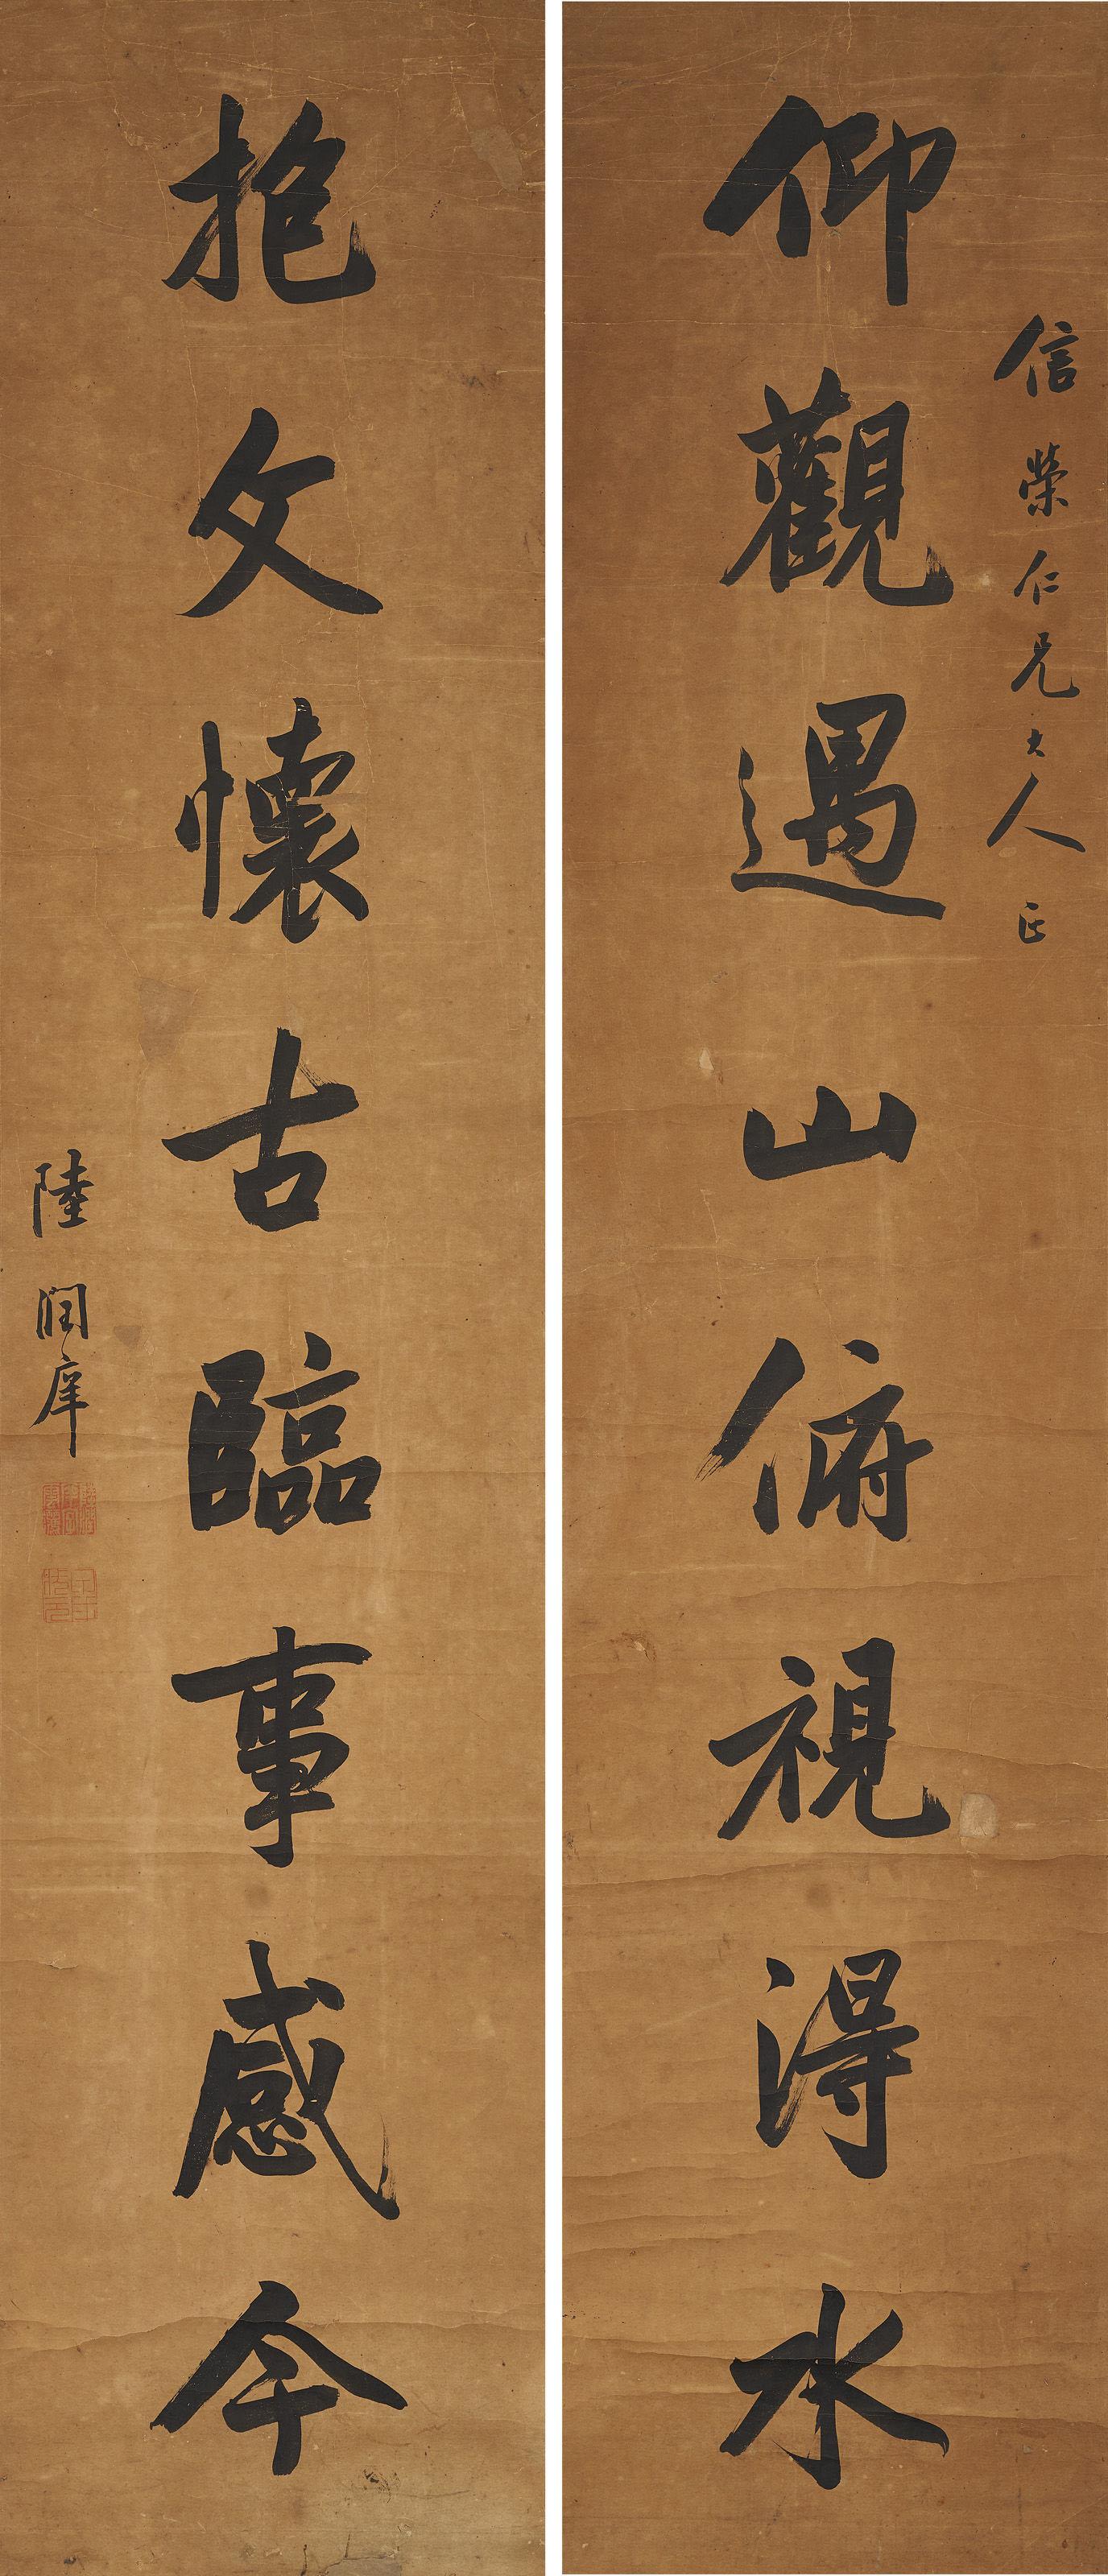 信榮仁兄大人正
仰觀遇山俯視得水
抱文懷古臨事感今
陸潤庠